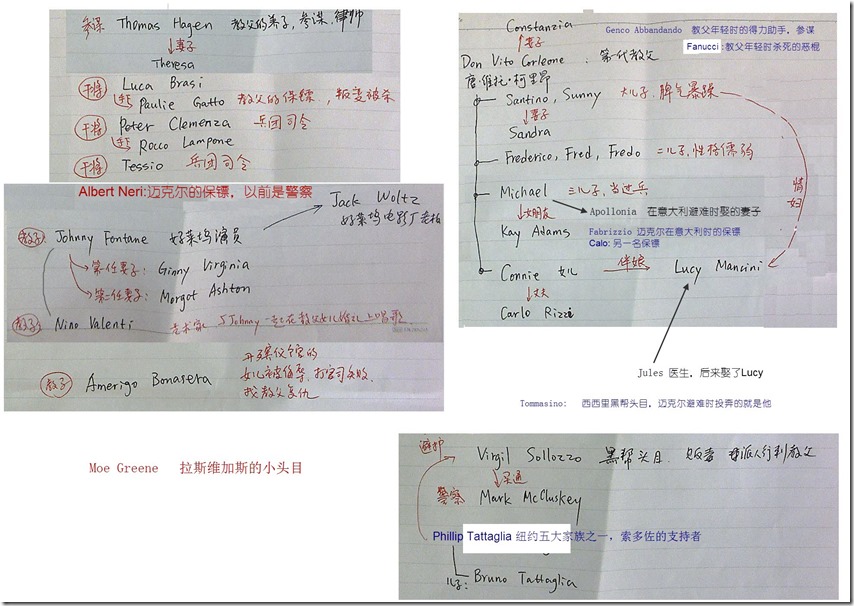 参谋 Thomas Hagen 教父的养子,参谋,律师
妻子
Theresa
干将 Luca Brasi
Paulie Gatto 教父的保镖,叛变被杀
干将 Peter Clemenza 兵团司令
Rocco Lampone
干将 Tessio 兵团司令
Albert Neri:迈克尔的保镖，以前是警察
Jack Woltz
好莱坞电影厂老板
教子 Johnny Fontane 好莱坞演员
第一任妻子: Ginny Virginia
第二任妻子: Margot Ashton
教子 Nino Valenti 与Johnny一起在教父女儿婚礼上唱歌
教子 Amerigo Bonasera
开殡仪馆的
女儿被侮辱,打官司失败,
找教父复仇
Moe Greene 拉斯维加斯的小头目
Constanzia
妻子
Genco Abbandando 教父年轻时的得力助手，参谋
Fanucci:教父年轻时杀死的恶棍
Don Vito Corleone 第一代教父
唐·维托·柯里昂
Santino, Sunny 大儿子,脾气暴躁
妻子
Sandra
Frederico, Fred, Fredo 二儿子,性格懦弱
Michael 三儿子,当过兵
Apollonia 在意大利避难时娶的妻子
女朋友
Kay Adams
Fabrizzio 迈克尔在意大利时的保镖
Calo: 另一名保镖
情妇
Connie 女儿 伴娘 Lucy Mancini
丈夫
Carlo Rizzi
Jules 医生，后来娶了Lucy
Tommasino: 西西里黑帮头目，迈克尔避难时投奔的就是他
庇护
Virgil Sollozzo 黑帮头目 贩毒 派人行刺教父
买通
警察 Mark McCluskey
Phillip Tattaglia 纽约五大家族之一，索多佐的支持者
儿子: Bruno Tattaglia